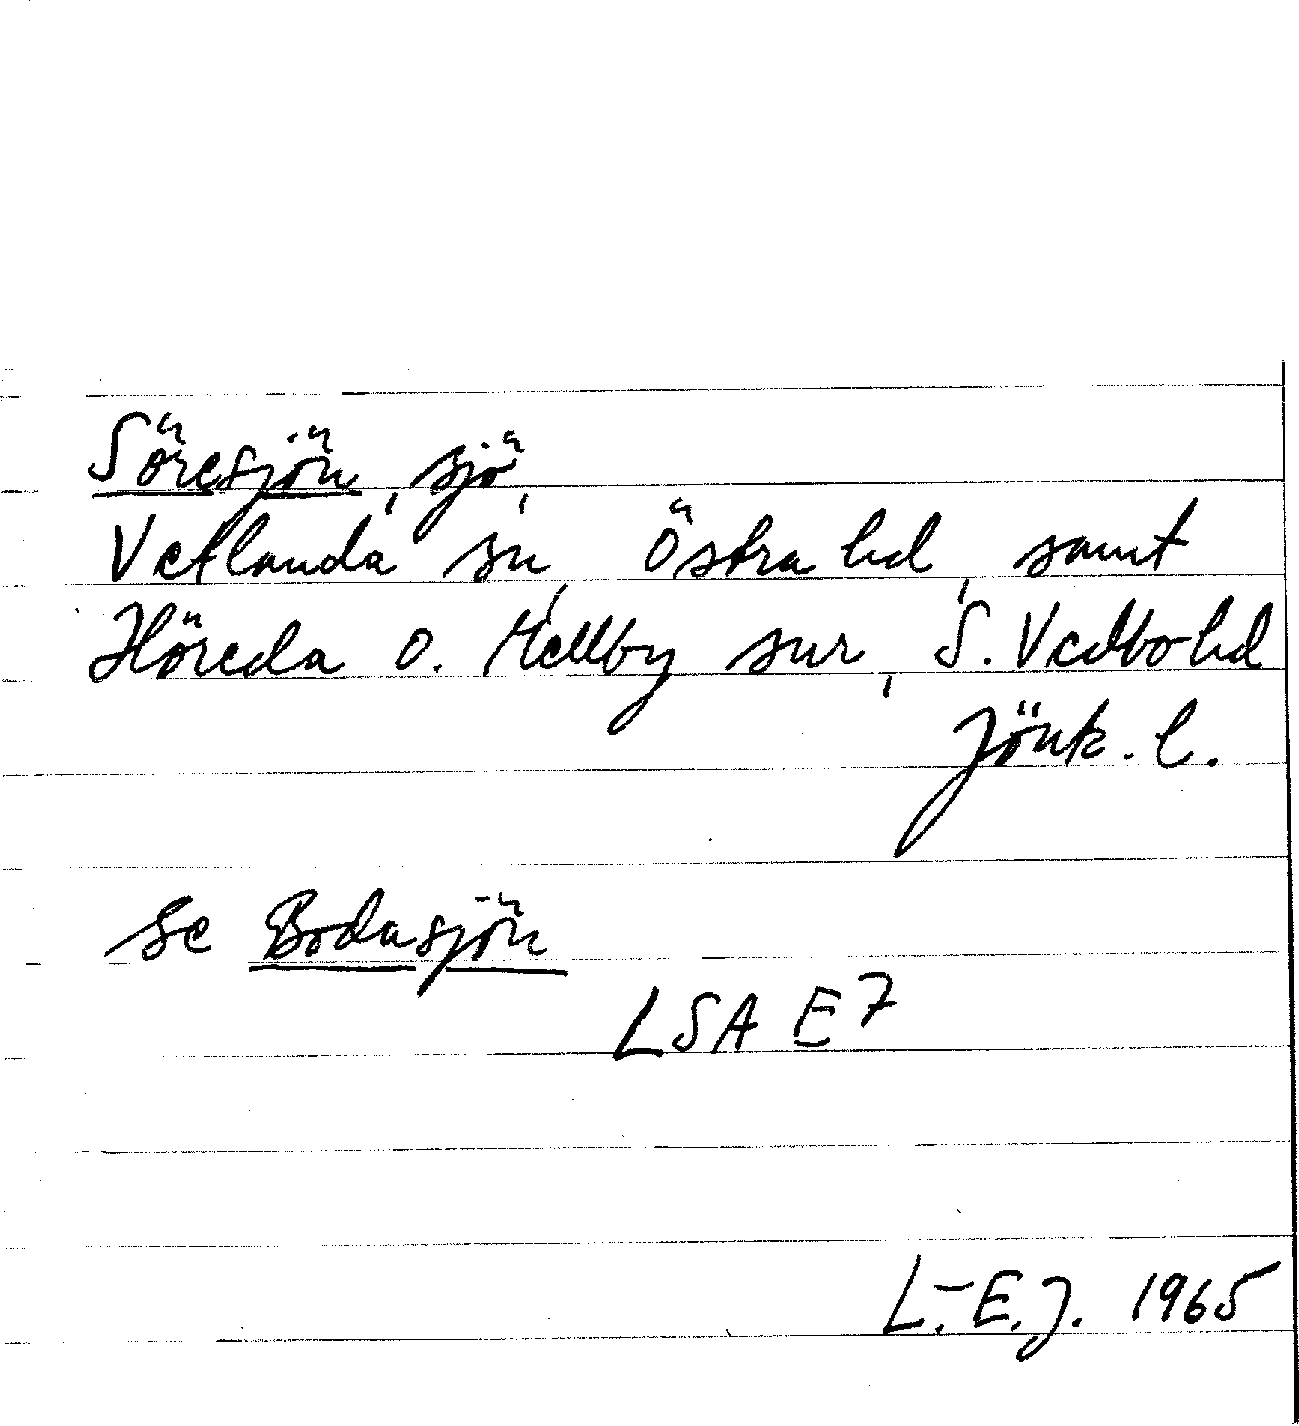 Söresjön, sjö,
Vetlanda sn, Östra hd, samt
Höreda o. Mellby snr, S. Vedbo hd
Jönk. l.
se Bodasjön
LSA E7
L.-E.J. 1965